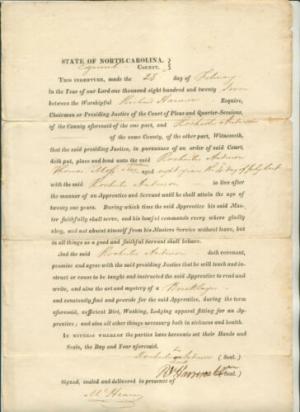 STATE OF NORTH-CAROLINA.
COUNTY.
THIS INDENTURE, made the 28 day of February
In the Year of our Lord one thousand eight hundred and twenty
between the Worshipful Esquire,
Chairman or Presiding Justice of the Court of Pleas and Quarter-Sessions,
of the County aforesaid of the one part, and
of the same County, of the other part, Witnesseth,
that the said presiding Justice, in pursuance of an order of said Court,
doth put, place and bind unto the said Anderson
Thomas aged eight years the 4 day of July last
with the said Anderson to live after
the manner of an Apprentice and Servant until he shall attain the age of
twenty one years. During which time the said Apprentice his said Mas-
ter faithfully shall serve, and his lawful commands every where gladly
obey, and not absent himself from his Masters Service without leave, but
in all things as a good and faithful Servant shall behave.
And the said Anderson doth covenant,
promise and agree with the said presiding Justice that he will teach and in-
struct or cause to be taught and instructed the said Apprentice to read and
write, and also the art and mystery of a
and constantly find and provide for the said Apprentice, during the term
aforesaid, sufficient Diet, Washing, Lodging apparel fitting for an Ap-
prentice; and also all other things necessary both in sickness and health.
IN WITNESS WHEREOF the parties have hereunto set their Hands and
Seals, the Day and Year aforesaid.
(Seal.)
(Seal.)
Signed, sealed and delivered in presence of